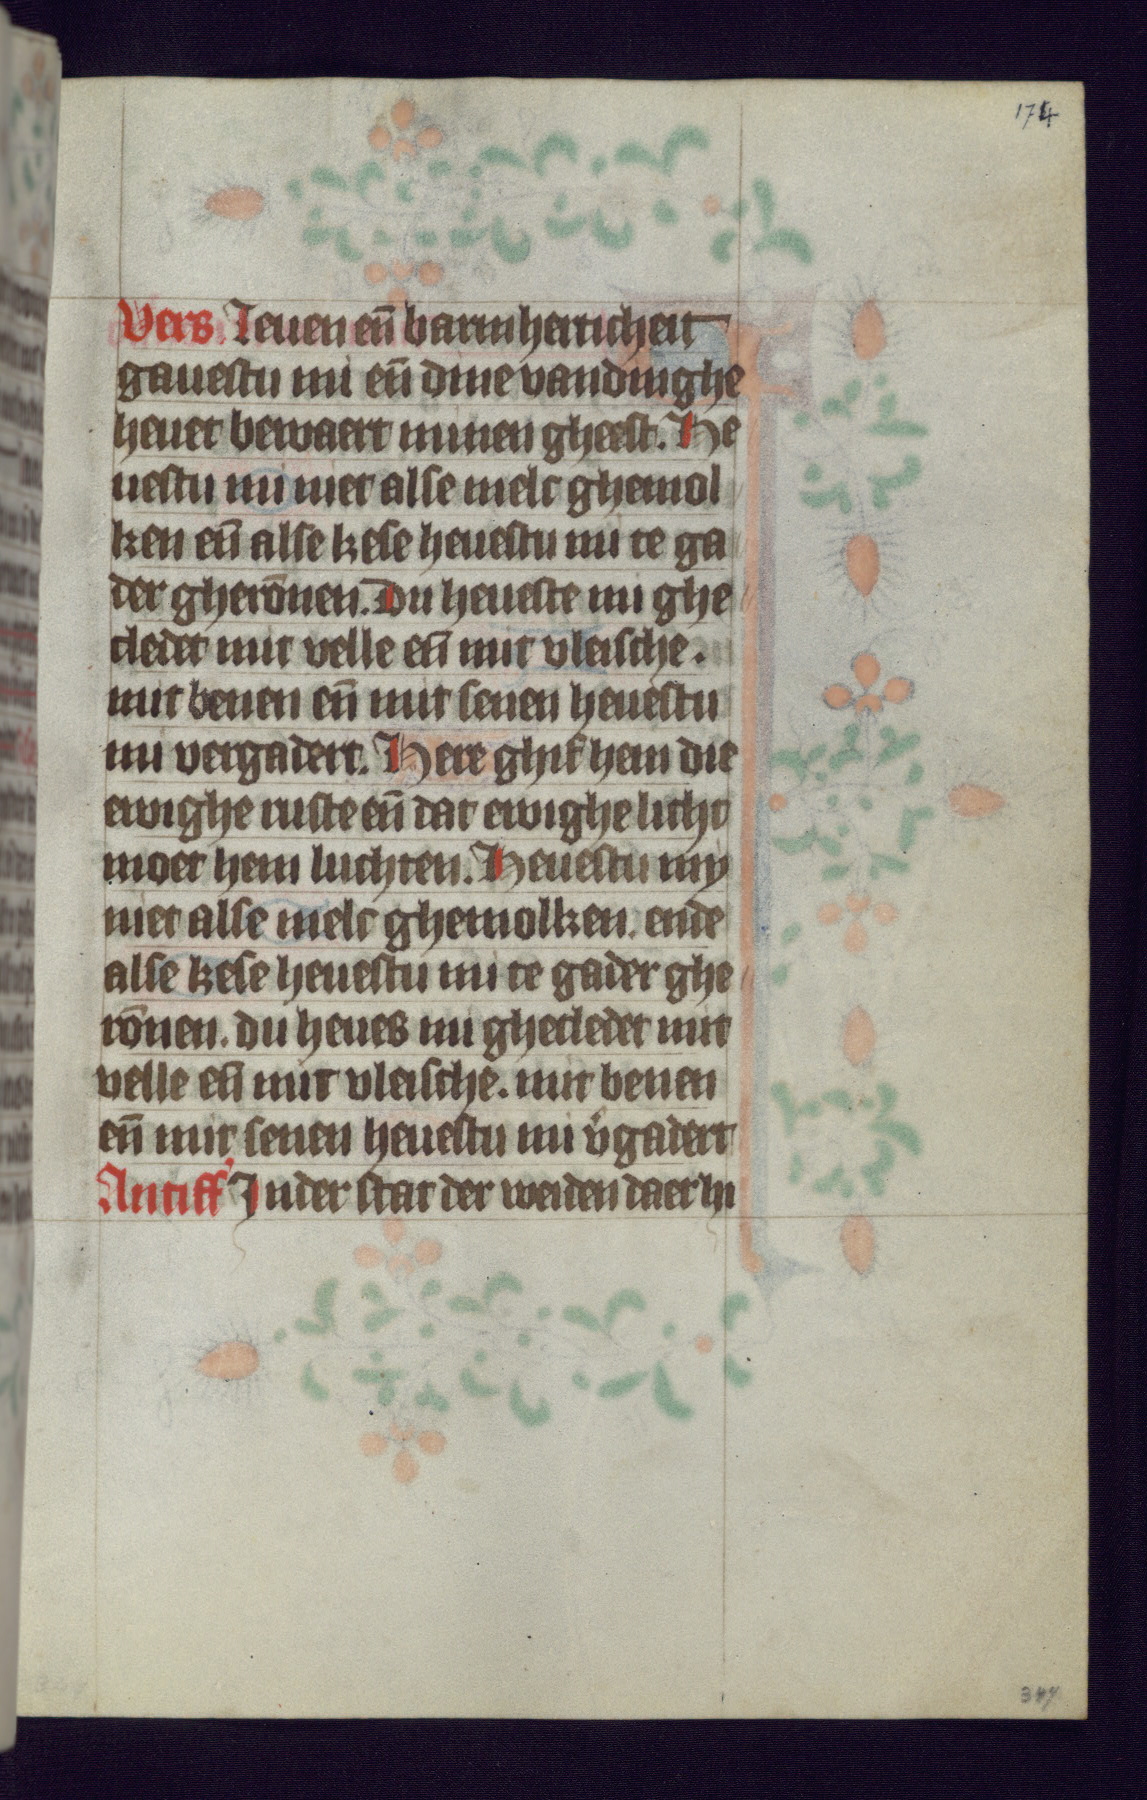 174
Vers. Leuen en̄ barmherticheit
gauestu mi en̄ dine vandinghe
heuet bewaert minen gheest. He
uestu mi niet alse melc ghemol
ken en̄ alse kese heuestu mi te ga
der gherōnen. Du heueste mi ghe
cledet mit velle en̄ mit vleische.
mit benen en̄ mit senen heuestu
mi vergadert. Here ghif hem die
ewighe ruste en̄ dat ewighe licht
moet hem luchten. Heuestu my
niet alse melc ghemolken. ende
alse kese heuestu mi te gader ghe
rōnen. du heues mi ghecledet mit
velle en̄ mit vleische. mit benen
en̄ mit senen heuestu mi v̓gadert
Antiff Inder stat der weiden daer hi
347